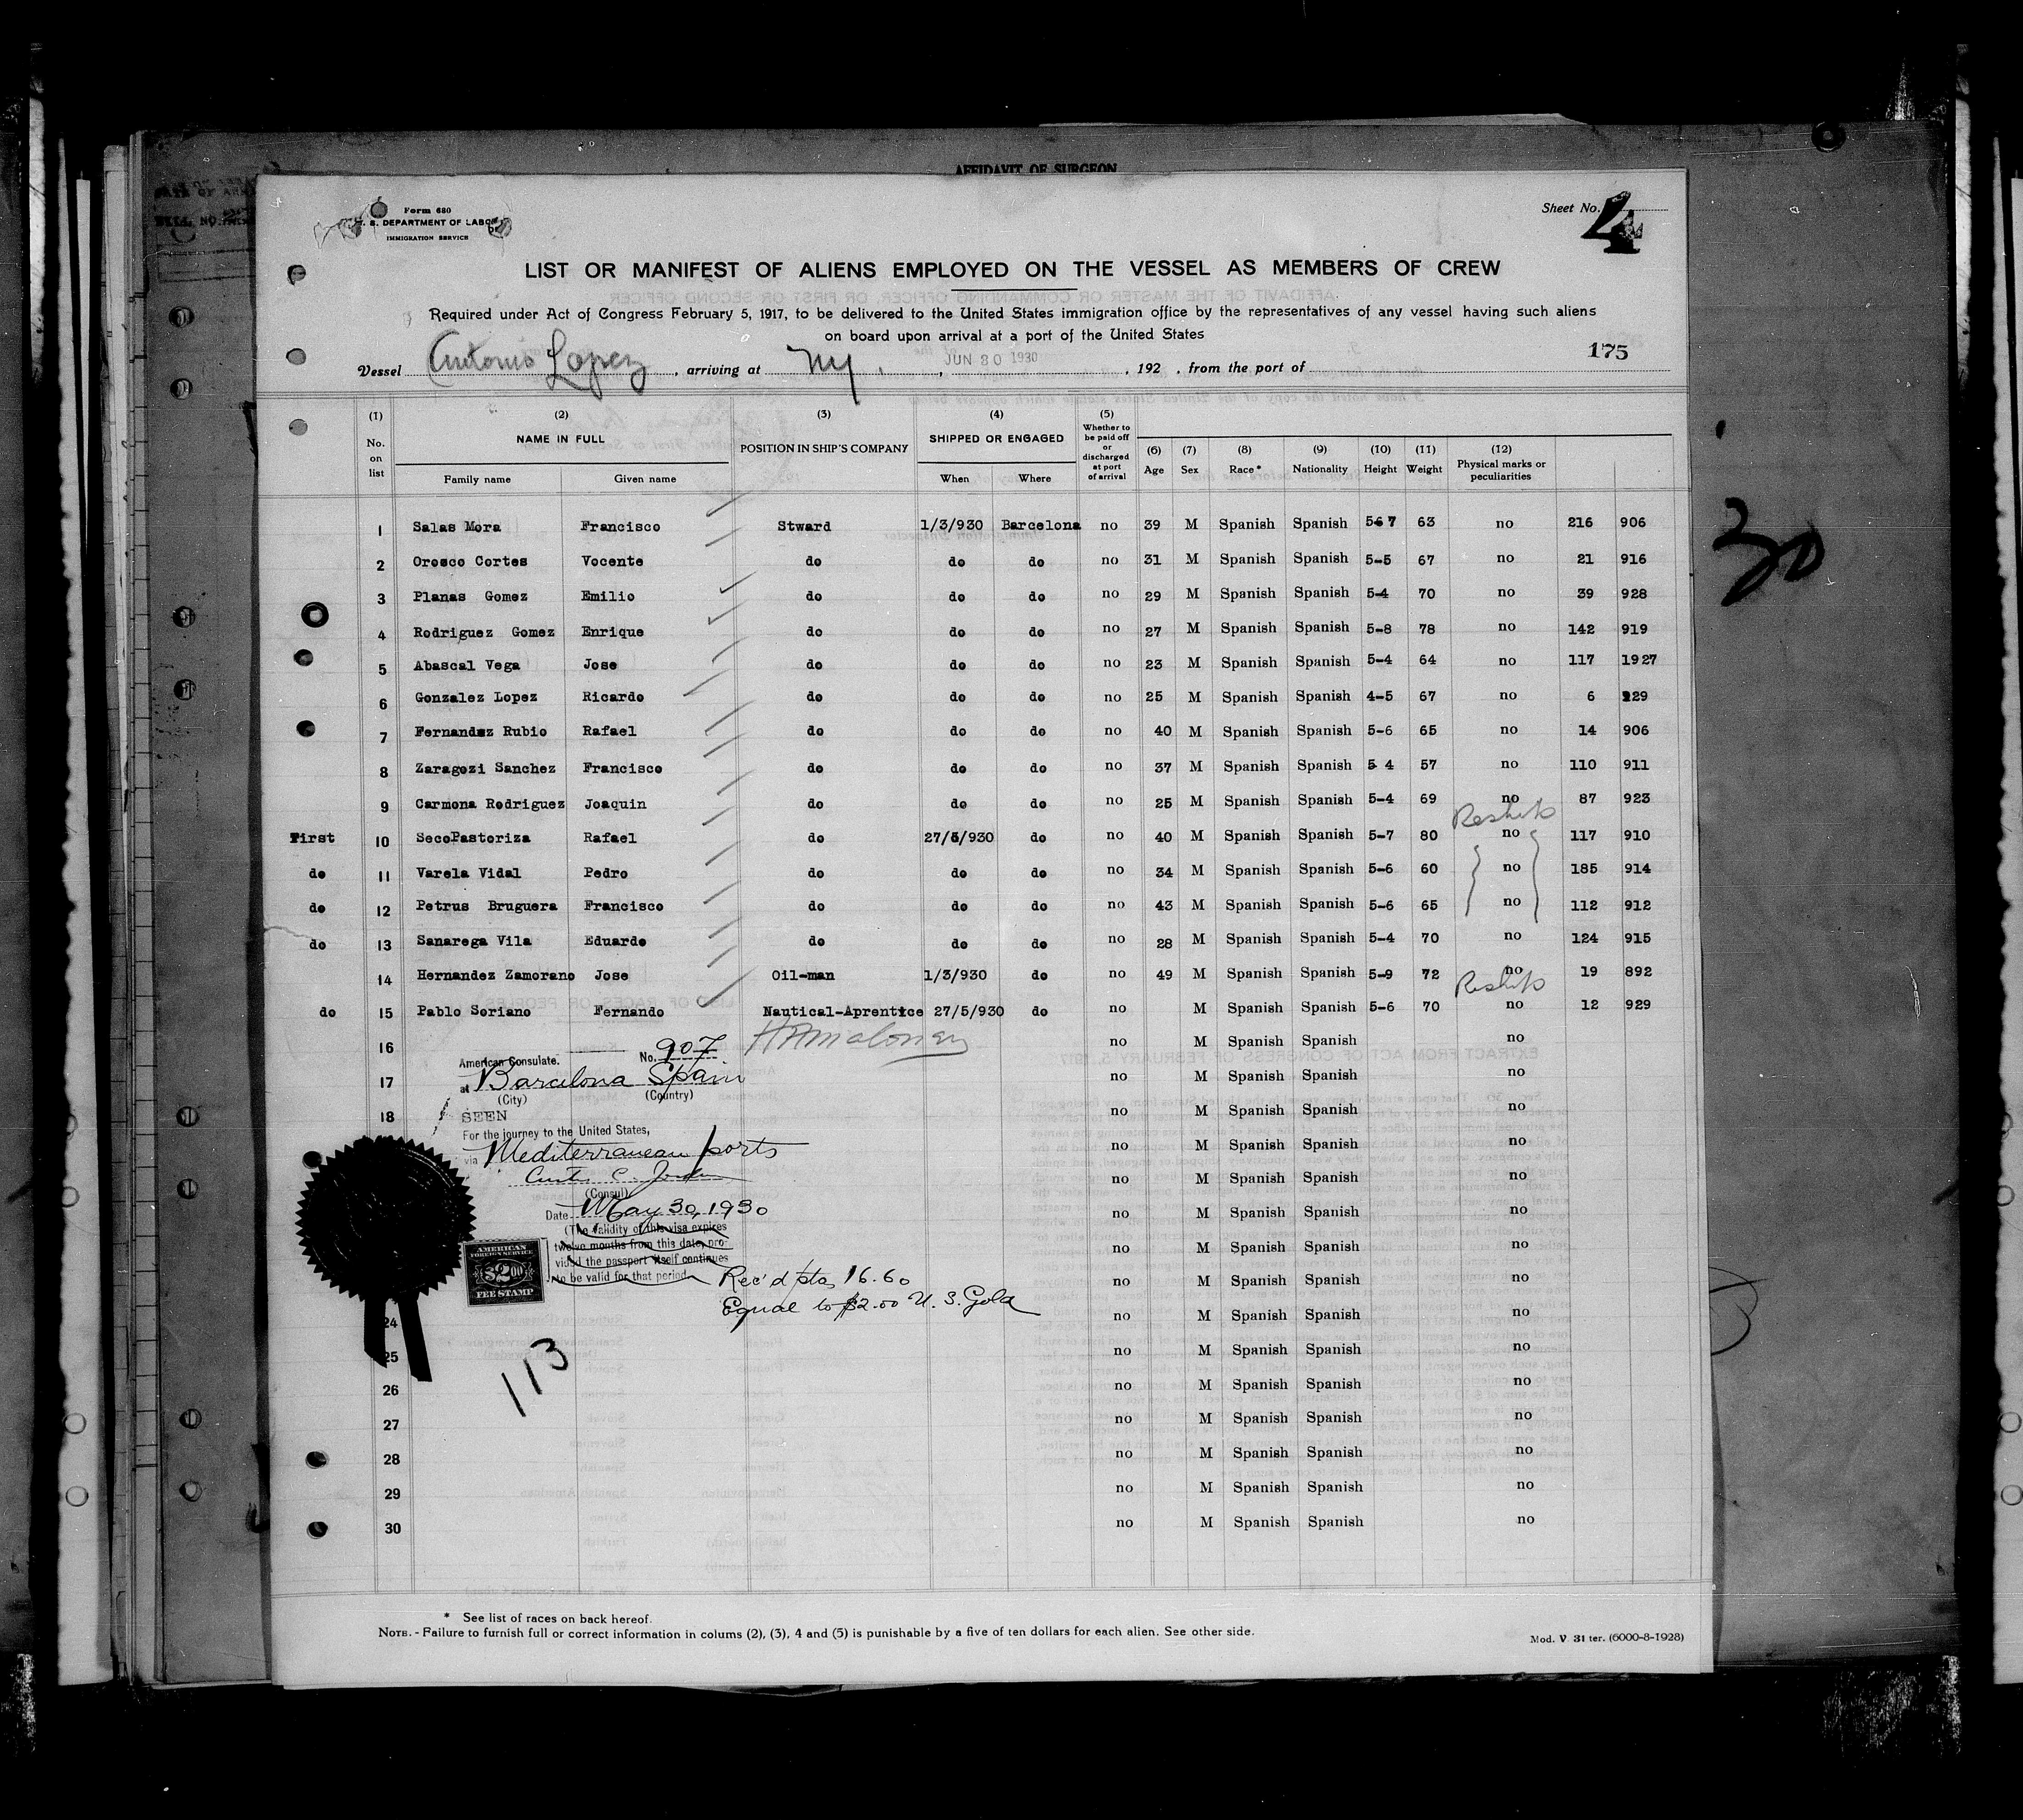 AFFIDAVIT OF SURGEON
Form 680
S. DEPARTMENT OF LABOR
IMMIGRATION SERVICE
Sheet No. 4
LIST OR MANIFEST OF ALIENS EMPLOYED ON THE VESSEL AS MEMBERS OF CREW
Required under Act of Congress February 5, 1917, to be delivered to the United States immigration office by the representatives of any vessel having such aliens
on board upon arrival at a port of the United States
175
Vessel Antonio Lopez, arriving at NY., JUN 30 1930, 192 , from the port of
(1) (2) (3) (4) (5)
No. on list NAME IN FULL POSITION IN SHIP'S COMPANY SHIPPED OR ENGAGED Whether to be paid off or discharged at port of arrival (6) Age (7) Sex (8) Race * (9) Nationality (10) Height (11) Weight (12) Physical marks or peculiarities
Family name Given name When Where
1 Salas Mora Francisco Stward 1/3/930 Barcelona no 39 M Spanish Spanish 5-6 7 63 no 216 906
30
2 Orosco Cortes Vocente do do do no 31 M Spanish Spanish 5-5 67 no 21 916
3 Planas Gomez Emilio do do do no 29 M Spanish Spanish 5-4 70 no 39 928
4 Rodriguez Gomez Enrique do do do no 27 M Spanish Spanish 5-8 78 no 142 919
5 Abascal Vega Jose do do do no 23 M Spanish Spanish 5-4 64 no 117 1927
6 Gonzalez Lopez Ricardo do do do no 25 M Spanish Spanish 4-5 67 no 6 929
7 Fernandez Rubio Rafael do do do no 40 M Spanish Spanish 5-6 65 no 14 906
8 Zaragozi Sanchez Francisco do do do no 37 M Spanish Spanish 5 4 57 no 110 911
9 Carmona Rodriguez Joaquin do do do no 25 M Spanish Spanish 5-4 69 no 87 923
Reship
First 10 SecoPastoriza Rafael do 27/5/930 do no 40 M Spanish Spanish 5-7 80 no 117 910
do 11 Varela Vidal Pedro do do do no 34 M Spanish Spanish 5-6 60 no 185 914
do 12 Petrus Bruguera Francisco do do do no 43 M Spanish Spanish 5-6 65 no 112 912
do 13 Sanarega Vila Eduardo do do do no 28 M Spanish Spanish 5-4 70 no 124 915
14 Hernandez Zamorano Jose Oil-man 1/3/930 do no 49 M Spanish Spanish 5-9 72 no 19 892
Reship
do 15 Pablo Soriano Fernando Nautical-Aprentice 27/5/930 do no M Spanish Spanish 5-6 70 no 12 929
16 no M Spanish Spanish no
American Consulate. No. 907
17 no M Spanish Spanish no
at Barcelona Spain
(City) (Country)
18 no M Spanish Spanish no
SEEN
For the journey to the United States,
no M Spanish Spanish no
via Mediterranean ports
no M Spanish Spanish no
Curtis C. Jordan
(Consul)
no M Spanish Spanish no
Date May 30, 1930
(The validity of this visa expires
twelve months from this date, pro-
vided the passport itself continues
to be valid for that period.
no M Spanish Spanish no
AMERICAN FOREIGN SERVICE
$2.00
FEE STAMP
no M Spanish Spanish no
Rec'd pta 16.60
Equal to $2.00 U. S. Gold
24 no M Spanish Spanish no
25 no M Spanish Spanish no
113
26 no M Spanish Spanish no
27 no M Spanish Spanish no
28 no M Spanish Spanish no
29 no M Spanish Spanish no
30 no M Spanish Spanish no
* See list of races on back hereof.
NOTE. - Failure to furnish full or correct information in colums (2), (3), 4 and (5) is punishable by a five of ten dollars for each alien. See other side.
Mod. V. 31 ter. (6000-8-1928)